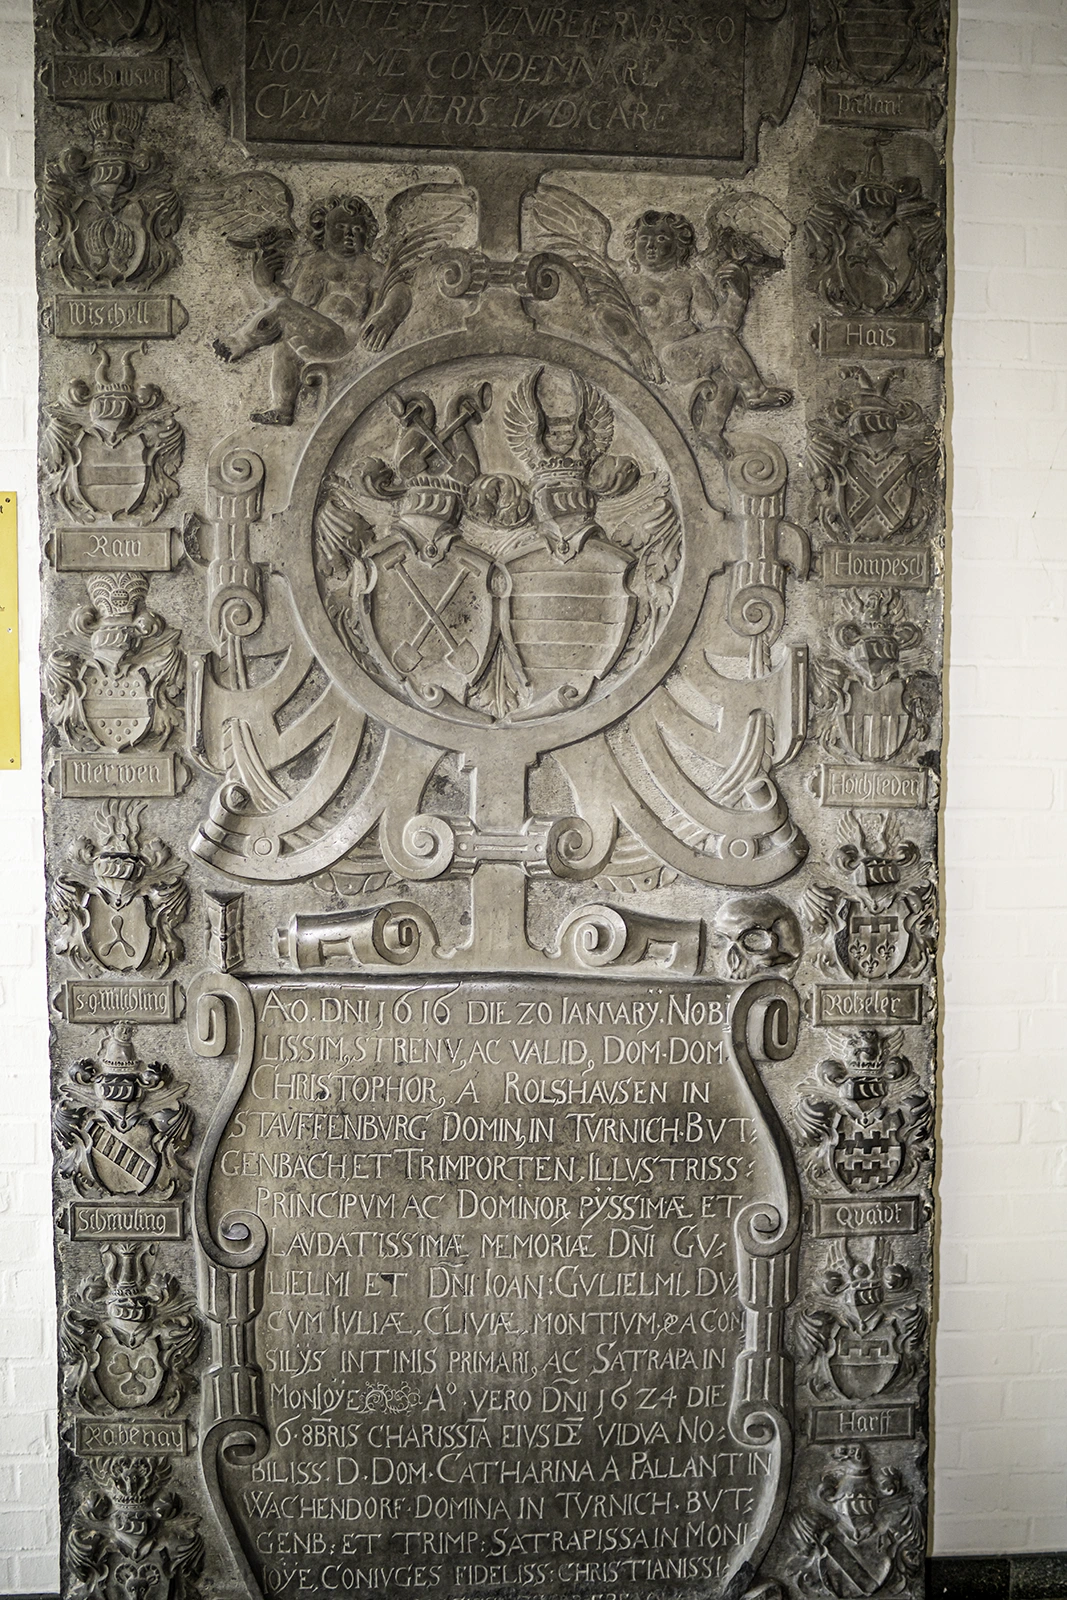 ET ANTE TE VENIRE ERVBESCO
NOLI ME CONDEMNARE
CVM VENERIS IVDICARE
Rolshausen
Pallant
Wischell
Hais
Raw
Hompesch
Merwen
Hoichsteden
s.g. Milchling
Rotzeler
Schmuling
Quaidt
Rabenau
Harff
AO. DNI 1616 DIE 20 IANVARÿ. NOBI
LISSIM, STRENV, AC VALID, DOM. DOM
CHRISTOPHOR, A ROLSHAVSEN IN
STAVFFENBVRG DOMIN, IN TVRNICH. BVT:
GENBACH, ET TRIMPORTEN, ILLVSTRISS:
PRINCIPVM AC DOMINOR PÿSSIMÆ ET
LAVDATISSIMÆ MEMORIÆ DÑI GV:
LIELMI ET DÑI IOAN: GVLIELMI. DV
CVM IVLIÆ, CLIVIÆ, MONTIVM, A CON
SILÿS INTIMIS PRIMARI, AC SATRAPA IN
MONIOÿE Aº. VERO DÑI 1624 DIE
6. 8BRIS CHARISSIĀ EIVSDĒ VIDVA NO:
BILISS. D. DOM. CATHARINA A PALLANT IN
WACHENDORF. DOMINA IN TVRNICH. BVT:
GENB: ET TRIMP: SATRAPISSA IN MONI
OÿE, CONIVGES FIDELISS: CHRISTIANISSI: